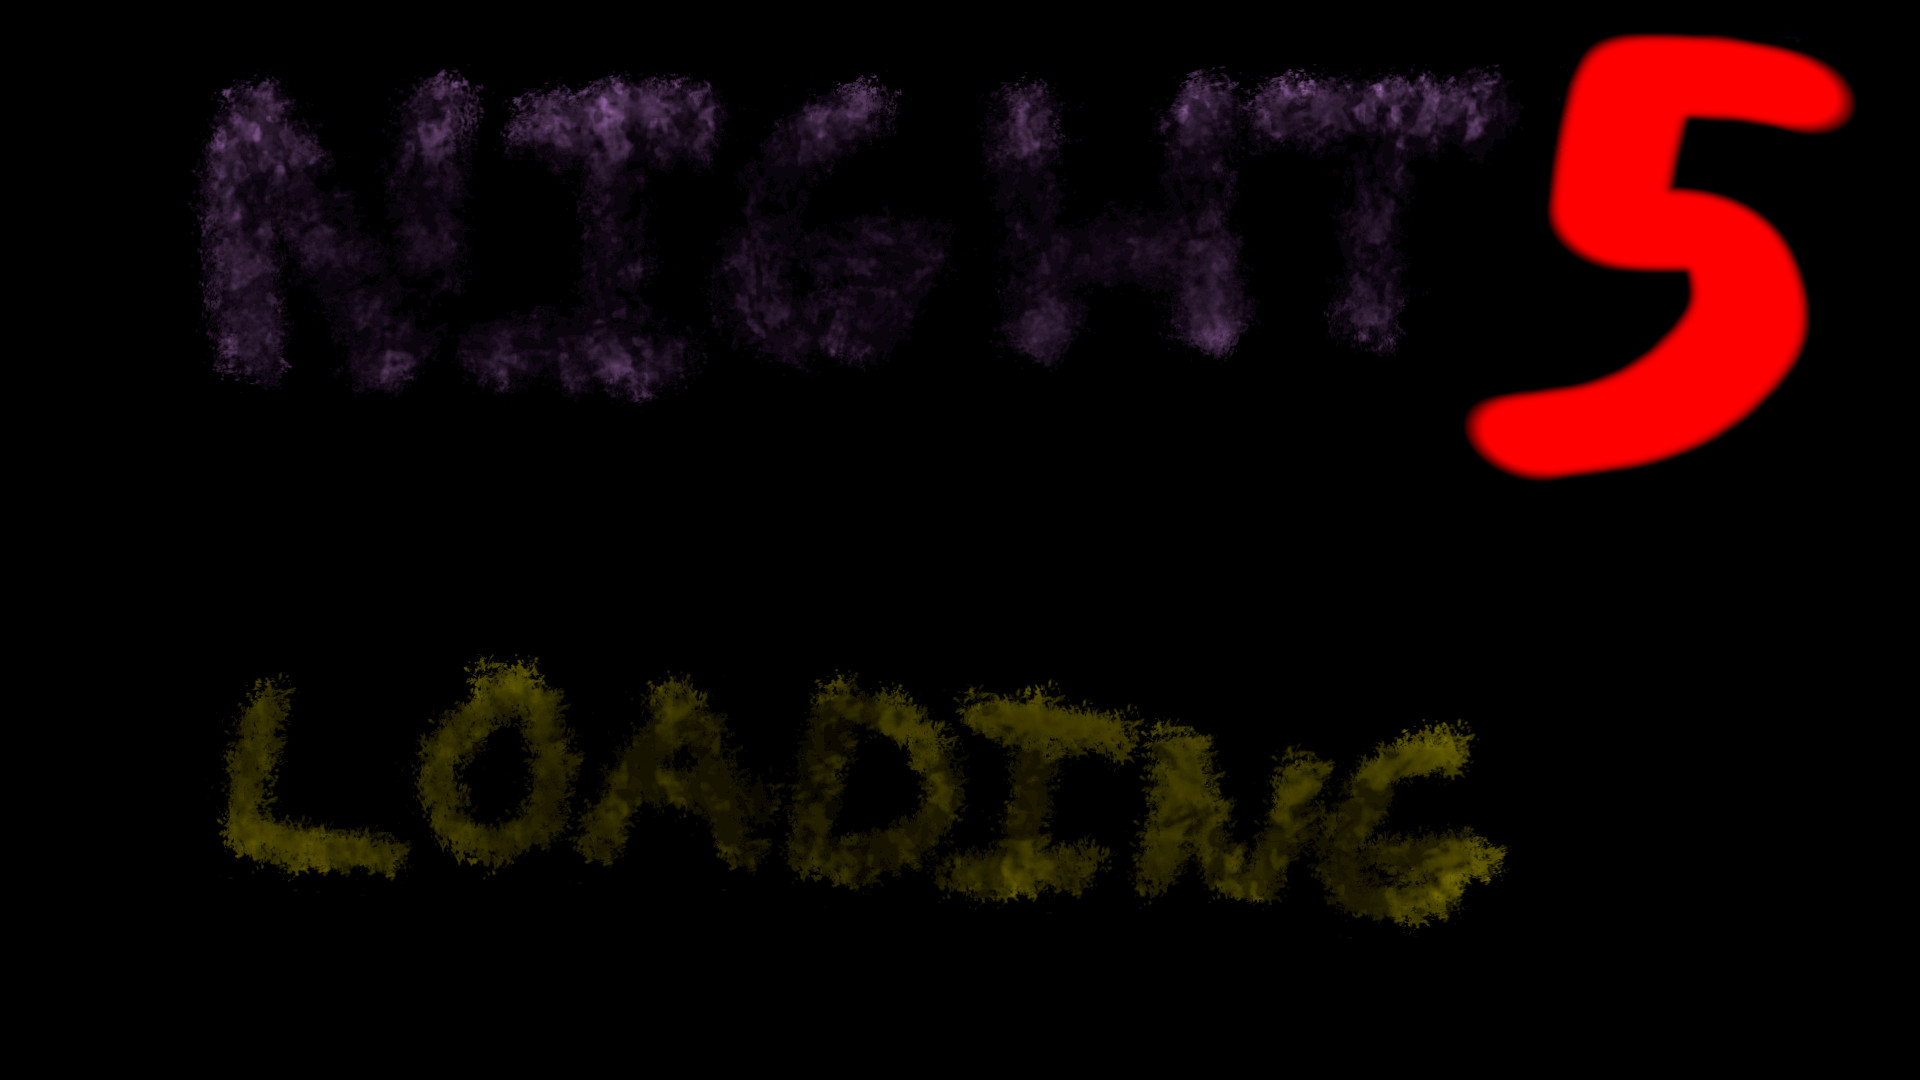 NIGHT 5
LOADING